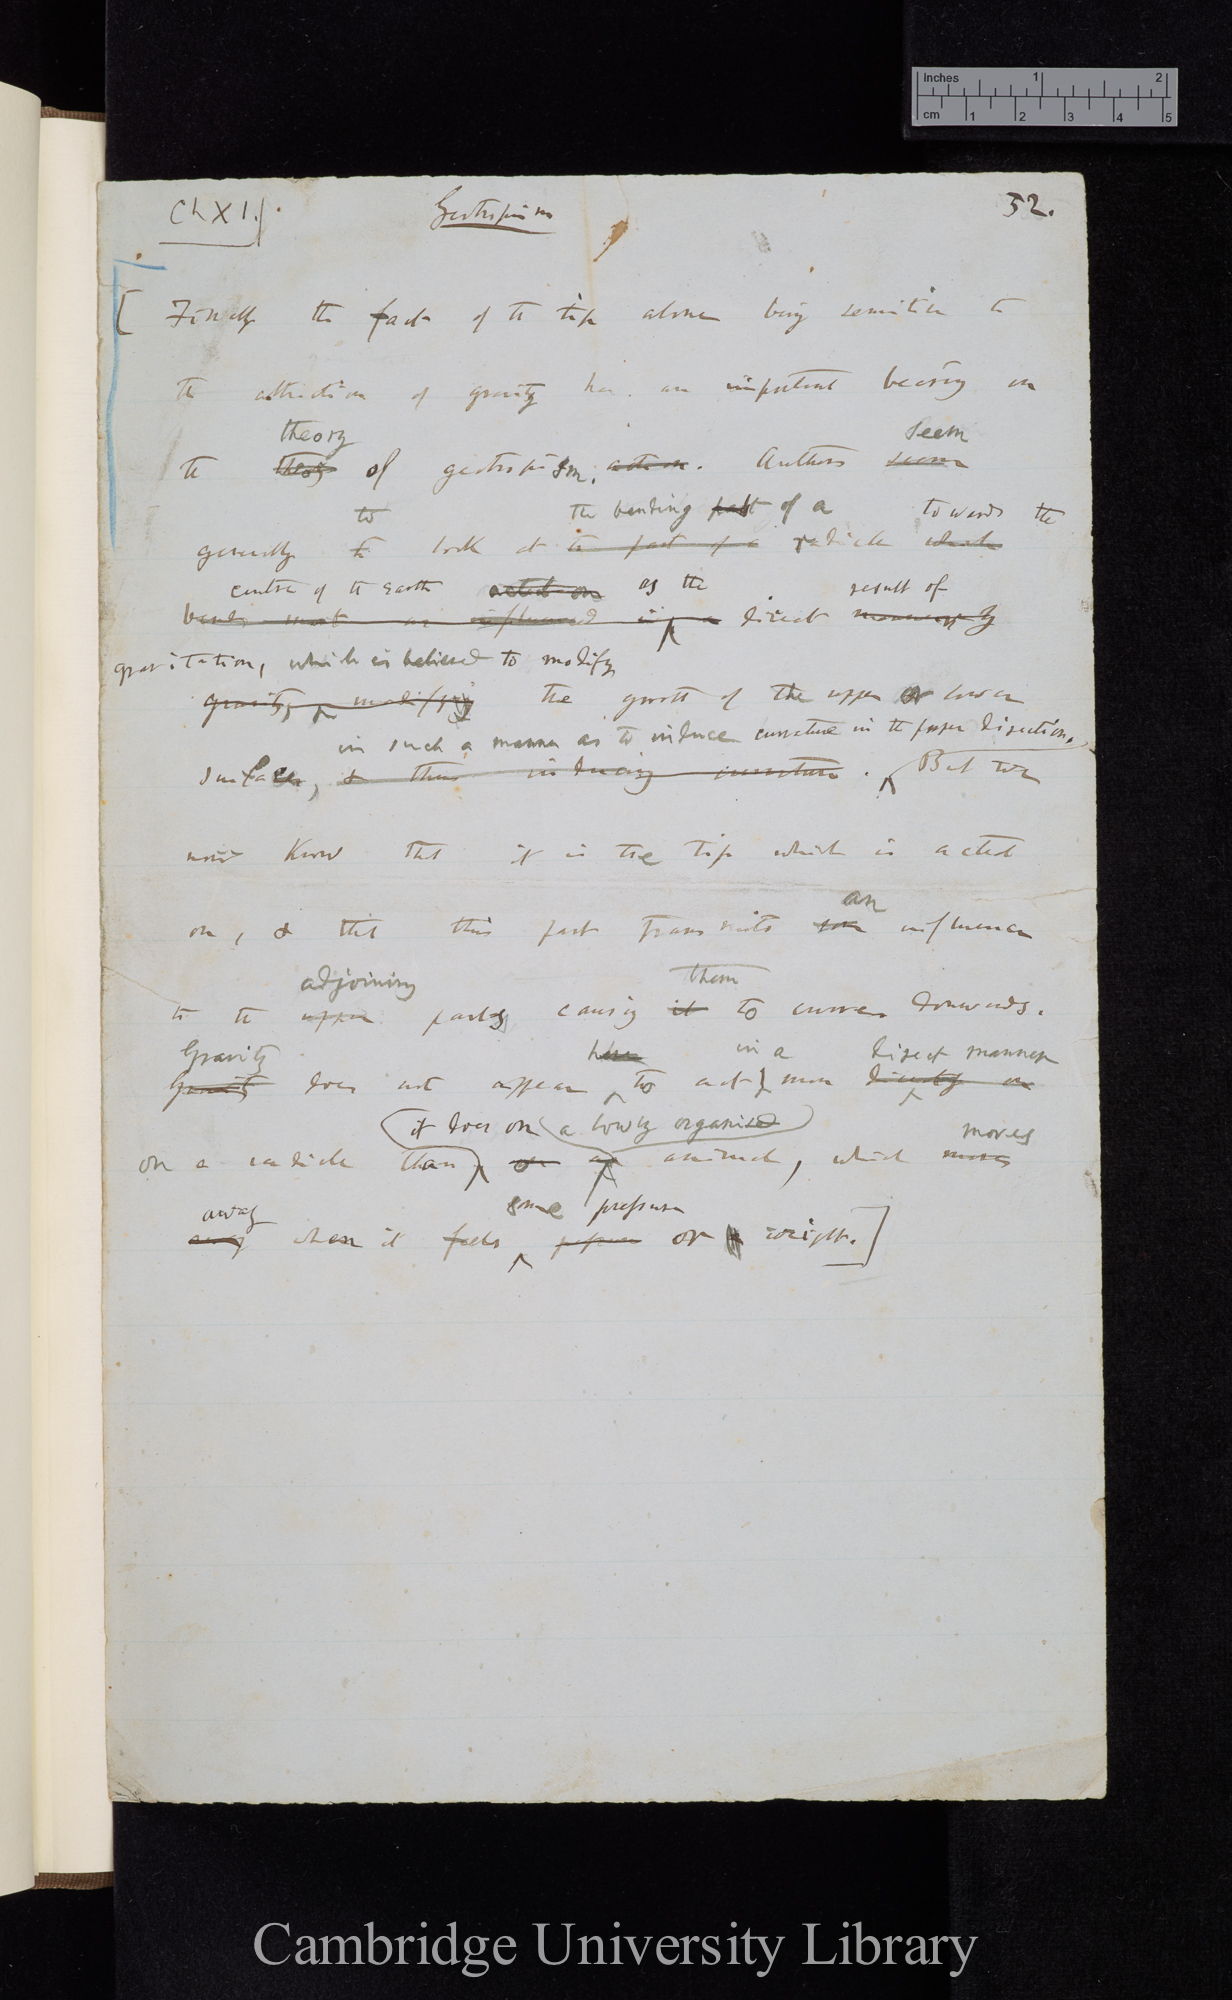 Inches 1 2
cm 1 2 3 4 5
Ch XI.
Geotropism
52.
[ Finally the fact of the tip alone being sensitive to
the attraction of gravity has an important bearing on
theory seem
the theory of geotropism. action. Authors seem
to the bending part of a towards the
generally to look at the part of a radicle which
centre of the earth acted on as the result of
bends most as influenced in a direct manner by
gravitation, which is believed to modify
gravity, modifying the growth of the upper or lower
in such a manner as to induce curvature in the proper direction.
surfaces, & thus inducing curvature. But we
now know that it is the tip which is acted
an
on, & that this part transmits some influence
adjoining them
to the upper parts causing it to curve downwards.
Gravity in a direct manner
Gravity does not appear to act more directly on
it does on a lowly organised
on a radicle than on an animal, which moves
moves
away some pressure
away when it feels pressure or weight.]
Cambridge University Library